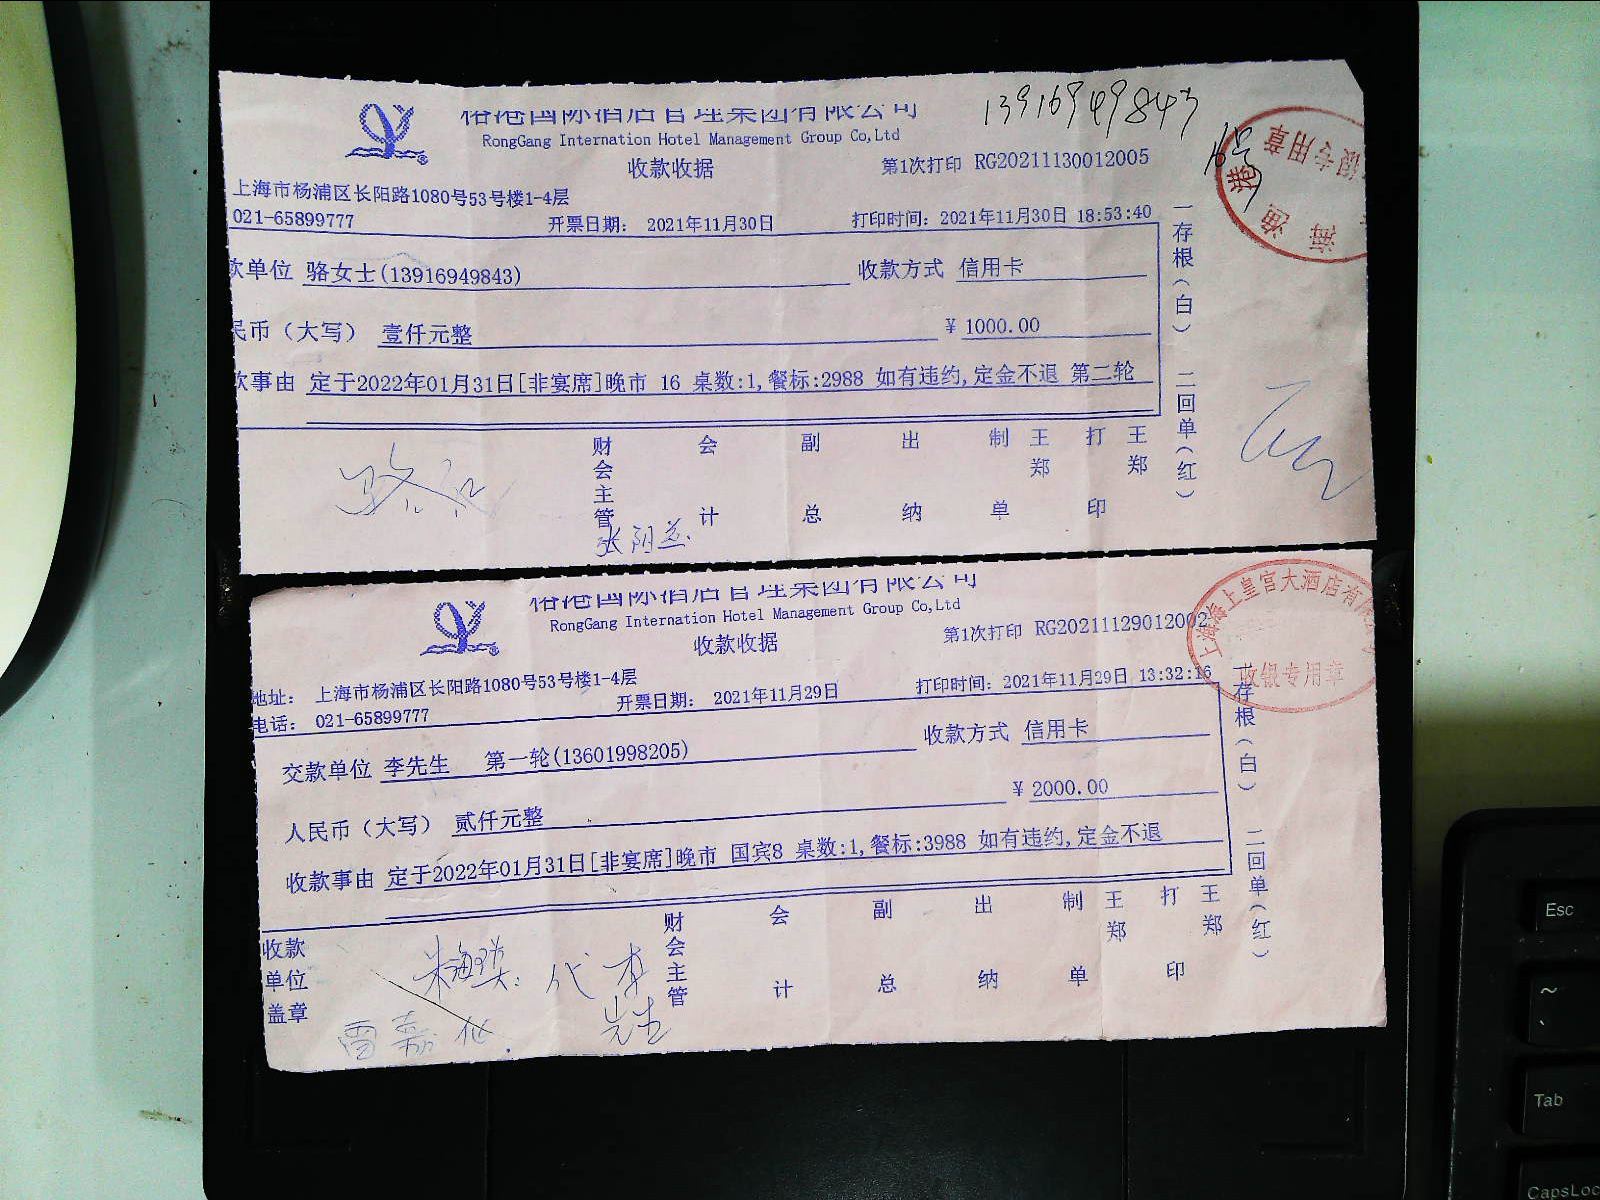 裕港国际酒店管理集团有限公司
13916949843
RongGang Internation Hotel Management Group Co,Ltd
16号
收款收据
第1次打印 RG20211130012005
银专用章
上海市杨浦区长阳路1080号53号楼1-4层
021-65899777
开票日期： 2021年11月30日
打印时间：2021年11月30日 18:53:40
海 渔 港
款单位 骆女士(13916949843)
收款方式 信用卡
民币（大写） 壹仟元整
¥ 1000.00
款事由 定于2022年01月31日[非宴席]晚市 16 桌数:1,餐标:2988 如有违约,定金不退 第二轮
一存根（白） 二回单（红）
财会主管 会计 副总 出纳 制单 王郑 打印 王郑
张阳益
裕港国际酒店管理集团有限公司
RongGang Internation Hotel Management Group Co,Ltd
收款收据
第1次打印 RG20211129012002
上海海上皇宫大酒店有限公司
收银专用章
地址： 上海市杨浦区长阳路1080号53号楼1-4层
电话： 021-65899777
开票日期： 2021年11月29日
打印时间：2021年11月29日 13:32:16
交款单位 李先生 第一轮(13601998205)
收款方式 信用卡
人民币（大写） 贰仟元整
¥ 2000.00
收款事由 定于2022年01月31日[非宴席]晚市 国宾8 桌数:1,餐标:3988 如有违约,定金不退
一存根（白） 二回单（红）
收款单位盖章
财会主管 会计 副总 出纳 制单 王郑 打印 王郑
代 李先生
雷嘉
Esc
~
Tab
CapsLoc